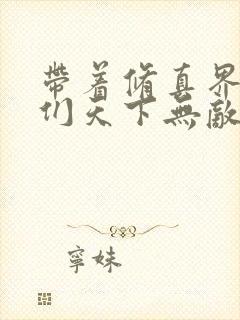 帶着脩真界
们天下無敵
寧妹